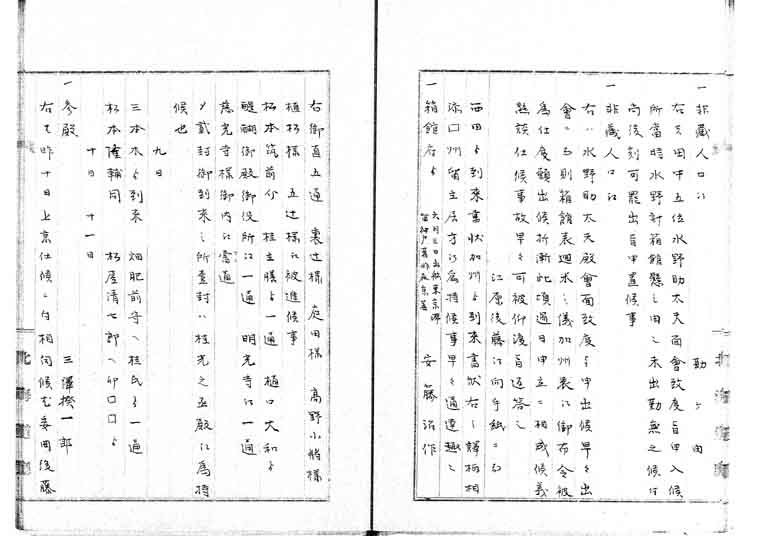 一 非蔵人口江 勤ヶ由
右ハ田中五位水野助太夫面會致度旨申入候
所當時水野新箱館懸之由ニ未出勤無之候付
尚後刻可罷出旨申置候事
一 非蔵人口江
右ハ水野助太夫殿會面致度ト申出候早々出
會ニ而則箱館表廻米之儀加州表江御布令被
為仕度願出候折漸此頃過日申立ニ相成候義
熟談仕候事故早々可被仰渡旨返答之
江原後藤江向手紙ニ而
西田ゟ到来書状加州ゟ到来書状右之歸柄相
添口州留主居方江為持候事早々通達趣之
一 箱館府ゟ 安藤治作
右御直五通 裏辻様 庭田様 高野小将様
植松様 五辻様江被進候事
松本筑前介 桂主膳ゟ一通 樋口大和ゟ
醍醐御殿御役所江一通 明光寺江一通
慈光寺様御内江壱通
〆貳封御到来之所壹封ハ桂光之丞殿江為持
候也
九日
三本木ゟ到来 畑肥前守ヘ桂氏ゟ一通
松本隆輔同 松屋清七郎ヘ卯口口ゟ
十日 十一日
一 参殿 三澤揆一郎
右ハ昨十日上京仕候ニ付相伺候也委曲後藤